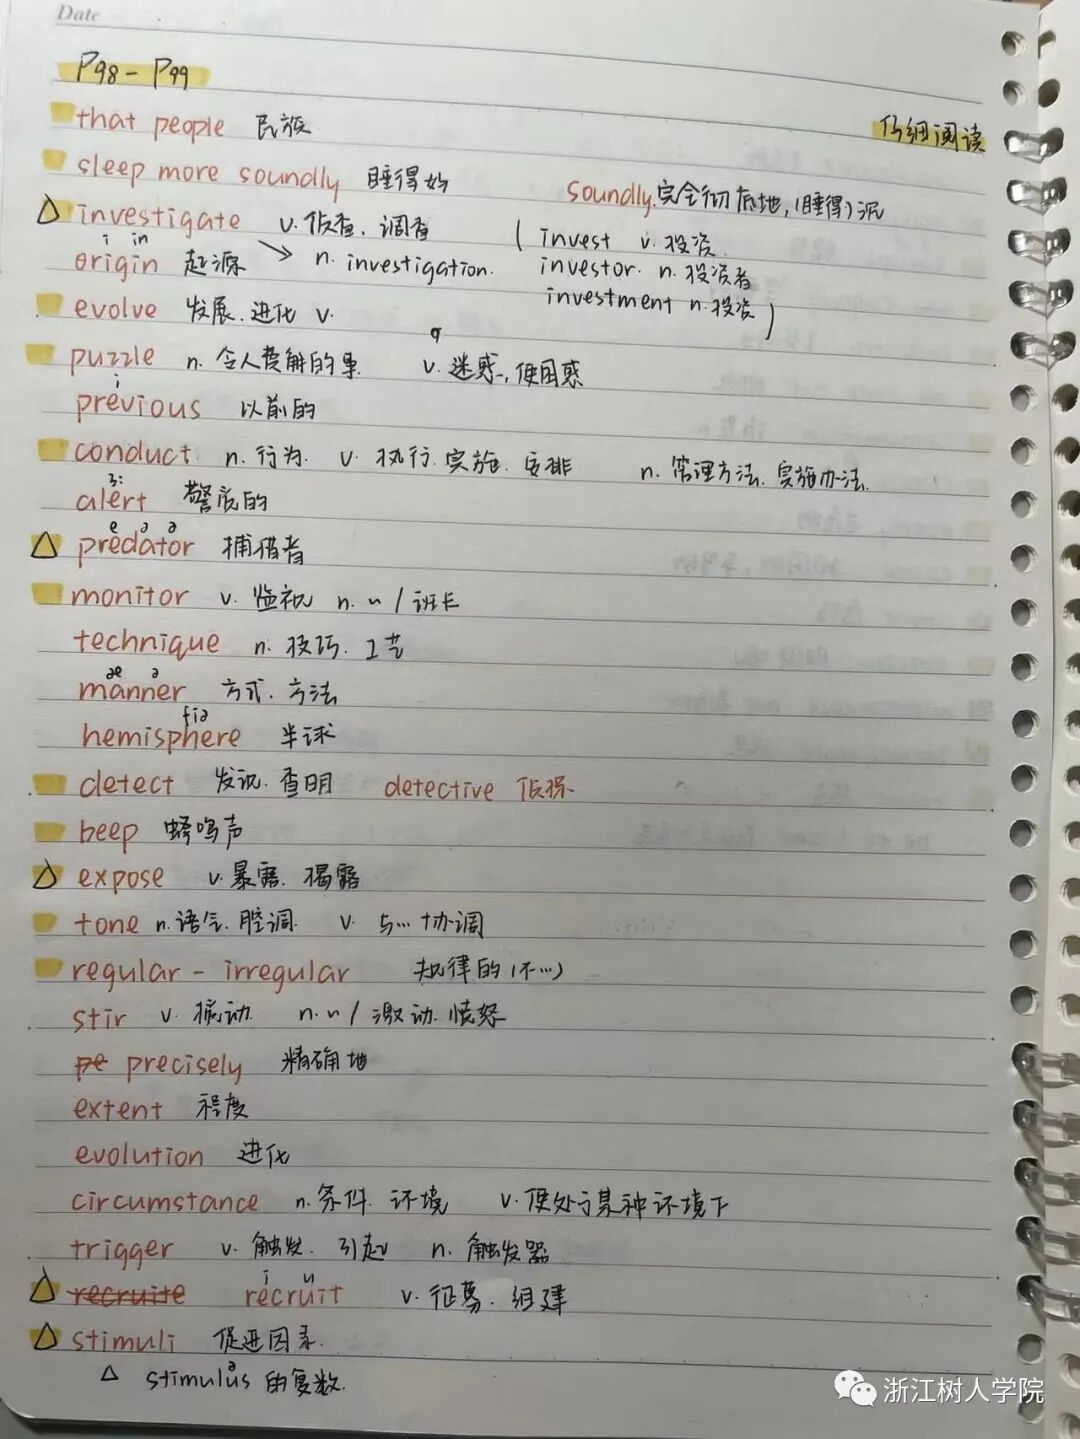 Date
P98 - P99
that people 民族
仔细阅读
sleep more soundly 睡得好 soundly.完全彻底地,(睡得)沉
△ investigate v. 侦查. 调查 ( invest v. 投资
i in
origin 起源 → n. investigation. investor. n. 投资者
investment n. 投资 )
evolve 发展. 进化 v.
puzzle n. 令人费解的事. v. 迷惑, 使困惑
i
previous 以前的
conduct n. 行为. v. 执行. 实施. 安排 n. 管理方法. 实施办法.
ɜ:
alert 警戒的
e ə ə
△ predator 捕猎者
monitor v. 监视 n. ~ / 班长
technique n. 技巧. 工艺
æ ə
manner 方式. 方法
fiə
hemisphere 半球
detect 发现. 查明 detective 侦探
beep 蜂鸣声
△ expose v. 暴露. 揭露
tone n. 语气. 腔调. v. 与… 协调
regular - irregular 规律的 (不…)
stir v. 搅动. n. ~ / 激动. 愤怒
pe precisely 精确地
extent 程度
evolution 进化
circumstance n. 条件. 环境 v. 使处于某种环境下
trigger v. 触发. 引起 n. 触发器
i u
△ recruite recruit v. 征募. 组建
△ stimuli 促进因素.
ə
△ stimulus 的复数.
浙江树人学院